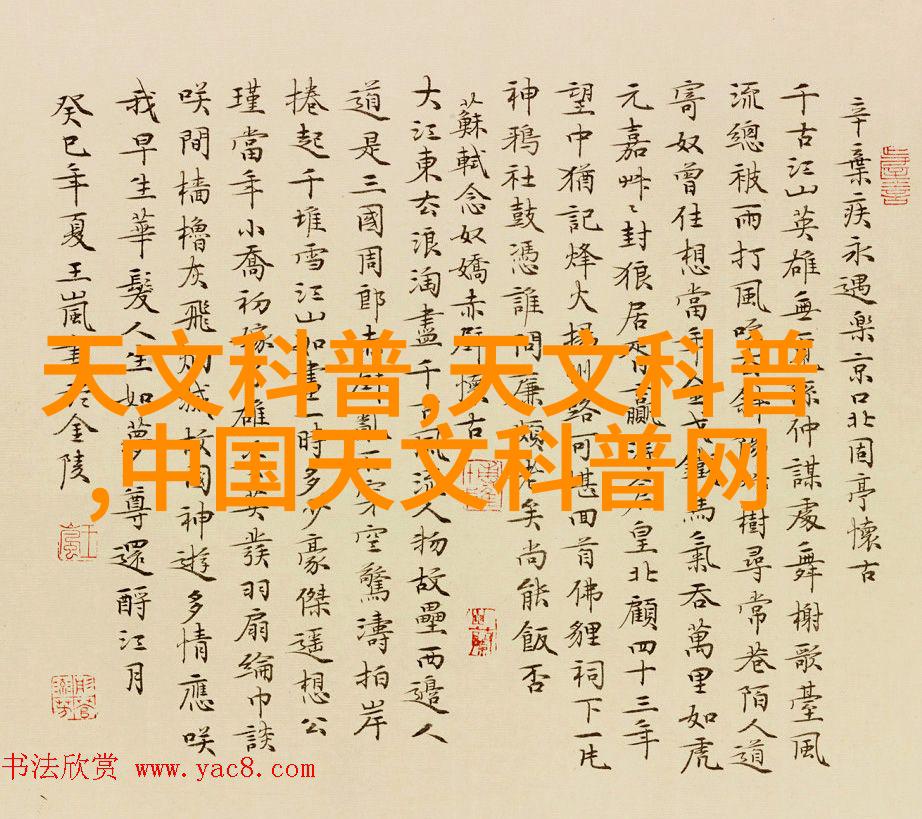 辛棄疾永遇楽京口北固亭懷古
千古江山英雄無孫仲謀處舞榭歌臺風
流總被雨打風吹斜陽樹尋常巷陌人道
寄奴曾住想當年金戈鐵馬氣吞萬里如虎
元嘉艸〻封狼居胥贏得皇北顧四十三年
望中猶記烽火揚州路可堪回首佛貍祠下一片
神鴉社鼓憑誰問廉頗老矣尚能飯否
蘇軾念奴嬌赤壁懷古
大江東去浪淘盡千古風流人物故壘西邊人
道是三國周郎赤壁亂石穿空驚濤拍岸
捲起千堆雪江山如畫一時多少豪傑遙想公
瑾當年小喬初嫁了雄姿英發羽扇綸巾談
咲間檣櫓灰飛煙滅故國神遊多情應咲
我早生華髮人生如夢尊還酹江月
癸巳年夏王嵐書於金陵
天文科普,天文科普
,中国天文科普网
书法欣赏 www.yac8.com